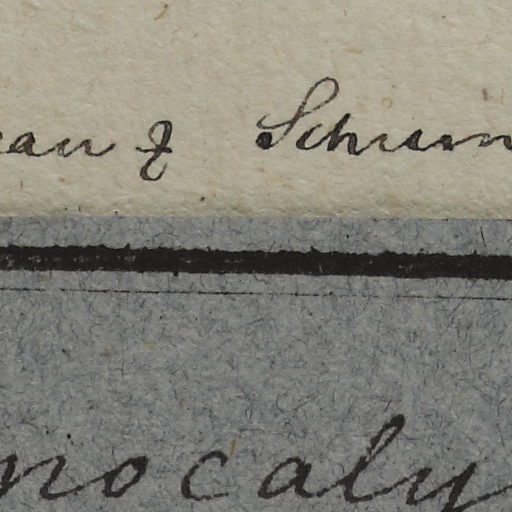 ranz Schum
nocaly